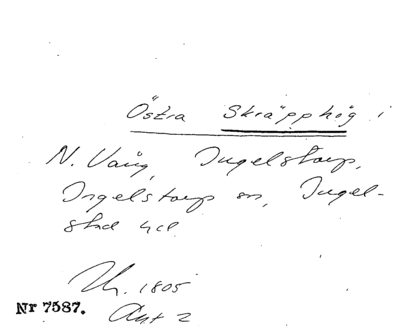 Östra Skräpphög i
N. Vång, Ingelstorp,
Ingelstorp sn, Ingel-
stad hd
1805
Nr 7587.
Akt 2